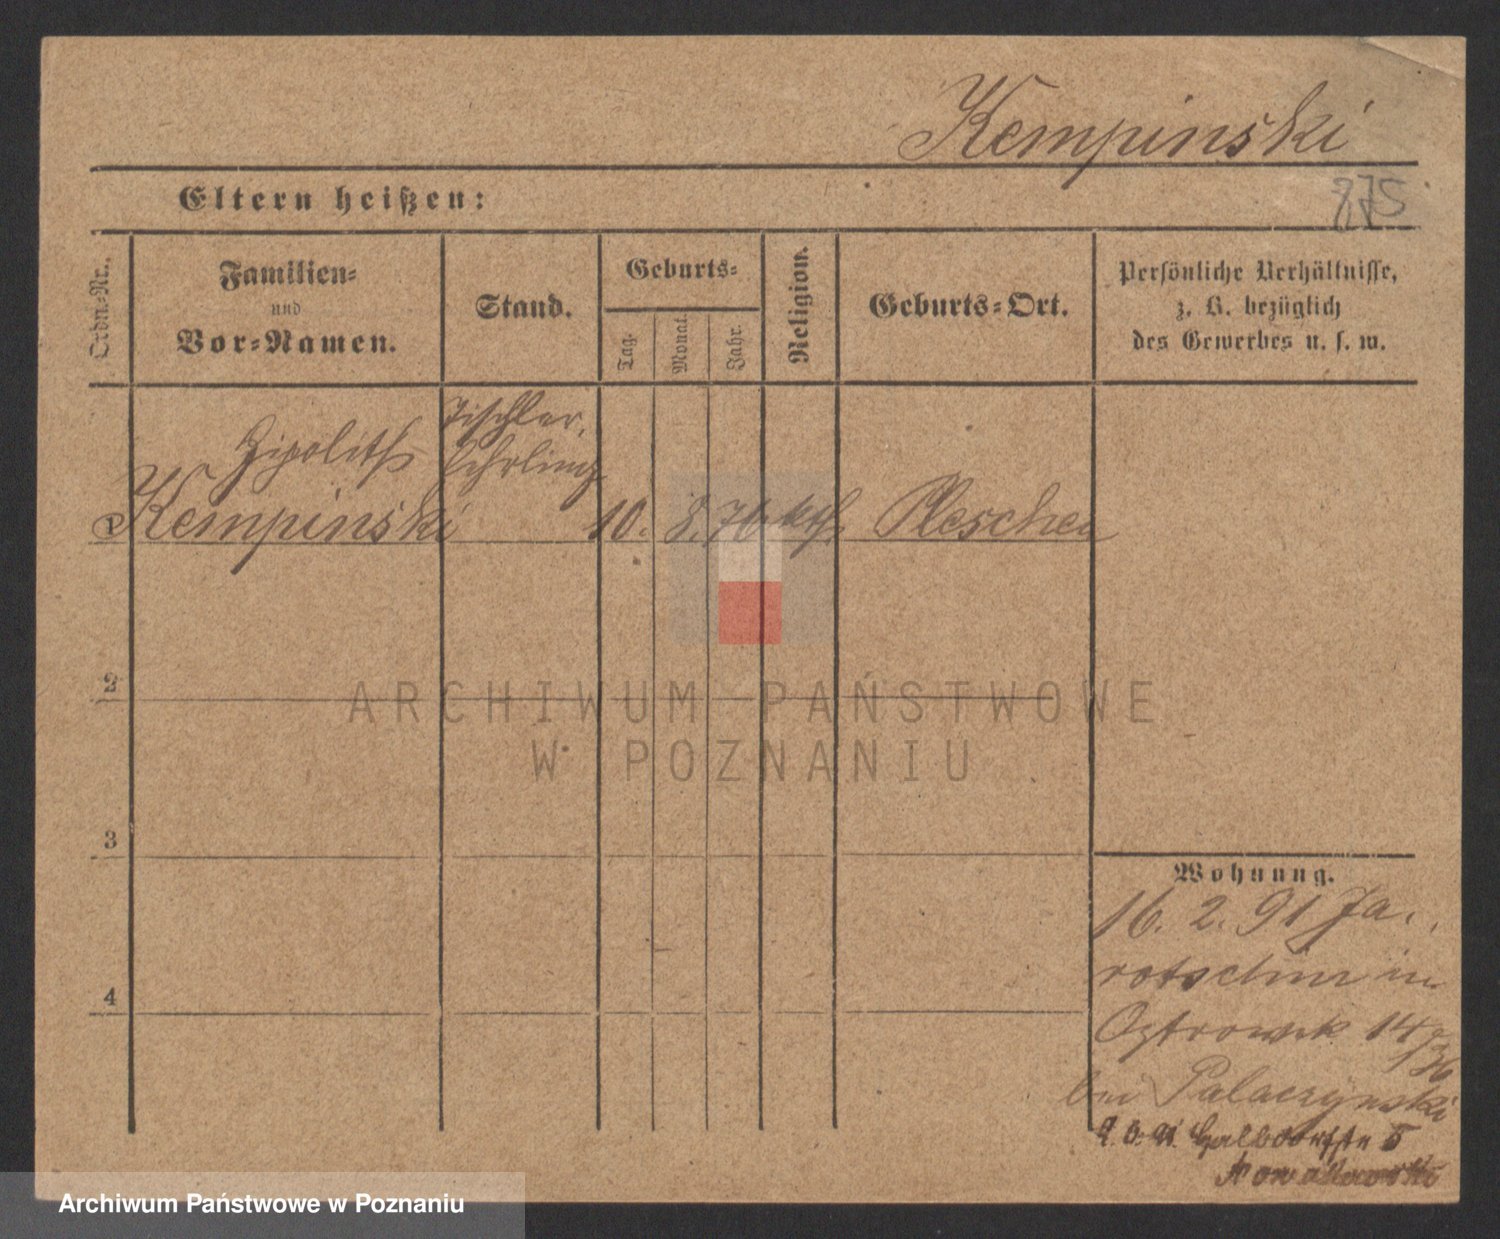 Kempinski
875
Eltern heißen:
Ordn.-Nr.
Familien-
und
Vor-Namen.
Stand.
Geburts-
Tag.
Monat.
Jahr.
Religion.
Geburts-Ort.
Persönliche Verhältnisse,
z. B. bezüglich
des Gewerbes u. s. w.
Hipolith
Tischler
lehrling
1 Kempinski 10. 8. 76 kth. Pleschen
2
ARCHIWUM PAŃSTWOWE
W POZNANIU
3
4
Wohnung.
16. 2. 91 Ja-
rotschin in
Ostrowek 14
bei Palaczynski
91 Halbdorfstr 5
Archiwum Państwowe w Poznaniu